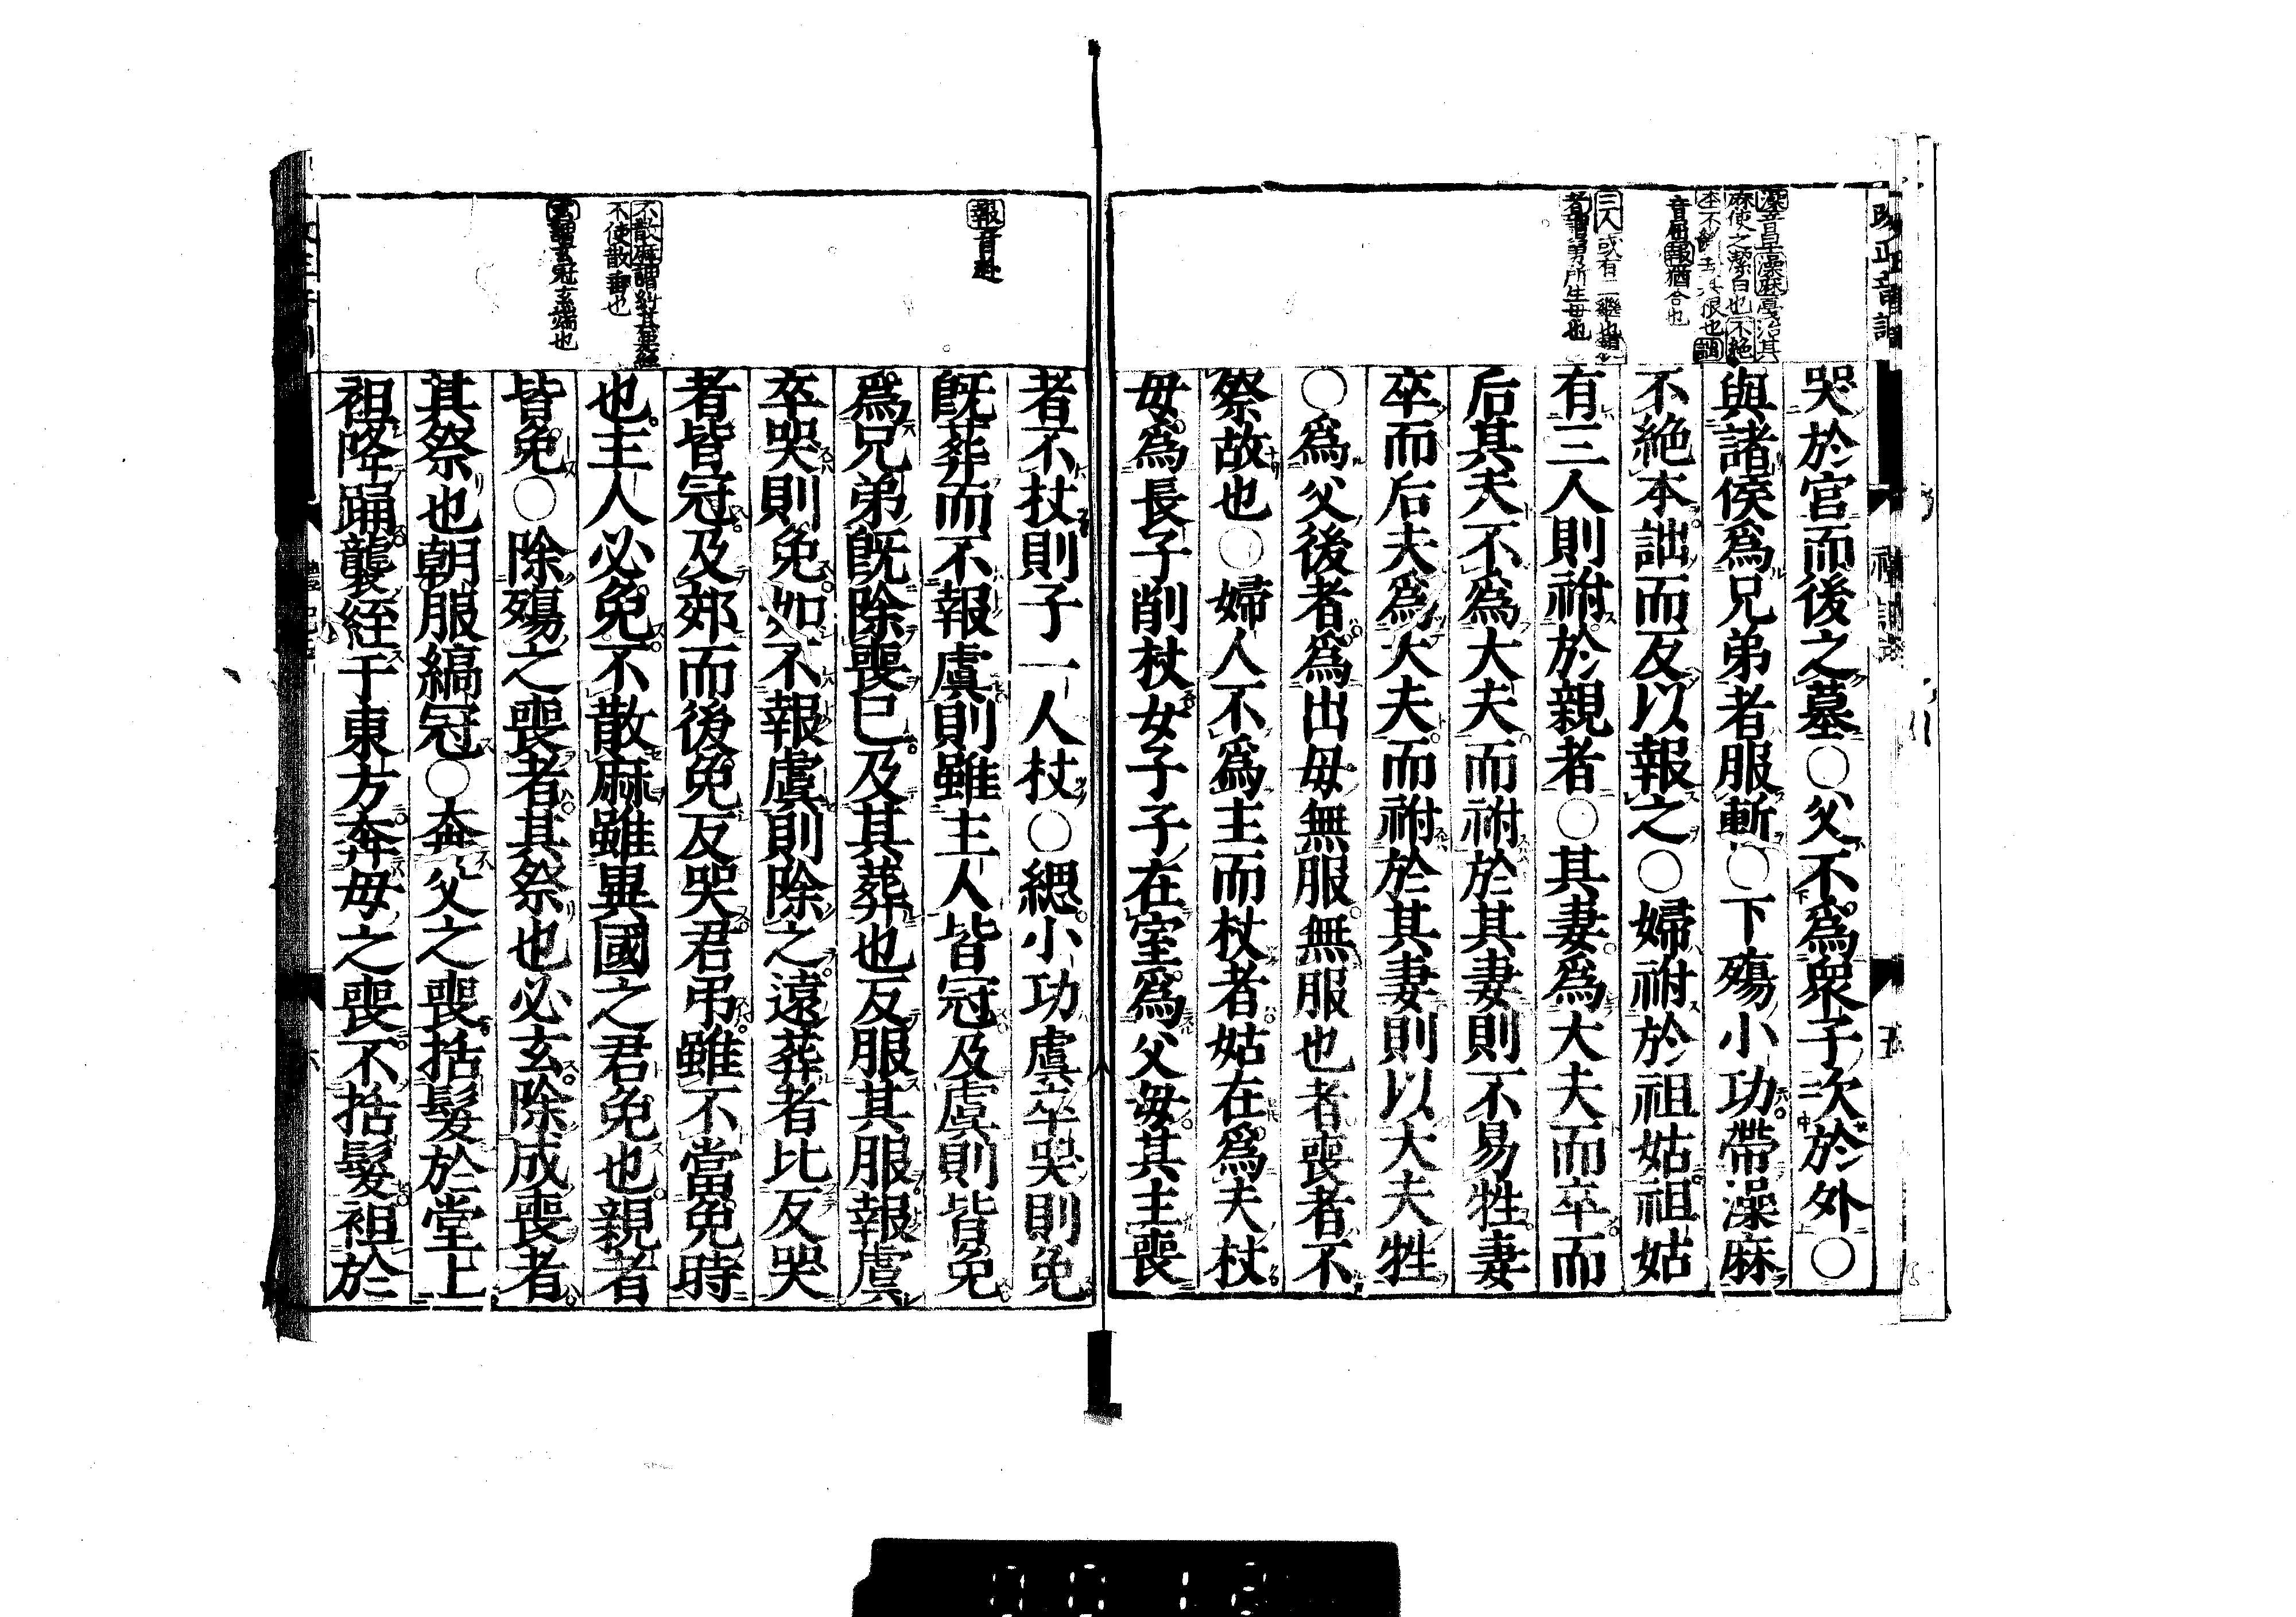 改正音訓
禮記
五
澡音早澡麻戞治其
麻使之潔白也不絶
本不 去其根也詘
音屈報猶合也
三人或有二繼也親
者謂舅所生母也
哭於宮而後之墓○父不爲衆子次於外○
與諸侯爲兄弟者服斬○下殤小功帶澡麻
不絶本詘而反以報之○婦祔於祖姑祖姑
有三人則祔於親者○其妻爲大夫而卒而
后其夫不爲大夫而祔於其妻則不易牲妻
卒而后夫爲大夫而祔於其妻則以大夫牲
○爲父後者爲出母無服無服也者喪者不
祭故也○婦人不爲主而杖者姑在爲夫杖
母爲長子削杖女子子在室爲父母其主喪
報音赴
不散麻謂糾其垂絰
不使散垂也
玄謂玄冠玄端也
者不杖則子一人杖○緦小功虞卒哭則免
既葬而不報虞則雖主人皆冠及虞則皆免
爲兄弟既除喪已及其葬也反服其服報虞
卒哭則免如不報虞則除之遠葬者比反哭
者皆冠及郊而後免反哭君弔雖不當免時
也主人必免不散麻雖異國之君免也親者
皆免○除殤之喪者其祭也必玄除成喪者
其祭也朝服縞冠○奔父之喪括髮於堂上
袒降踊襲絰于東方奔母之喪不括髮袒於
禮記
六